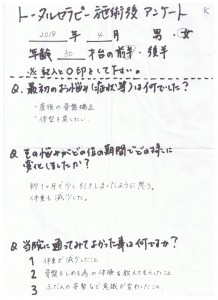 トータルセラピー施術後アンケート
K
2018年 4月 男・女
年齢 30 才台の前半・後半
※記入○印をして下さい。
Q. 最初のお悩み(症状等)は何でした?
・産後の骨盤矯正
・体型を戻したい。
Q. その悩みがどの位の期間でどの様に
変化しましたか?
約1ヶ月で少し引きしまったように思う。
体重も減少した。
Q. 当院に通ってみてよかった事は何ですか?
1 体重が減少したこと
2 骨盤をしめる為の体操を教えてもらったこと
3 ふだんの姿勢など意識が変わったこと。